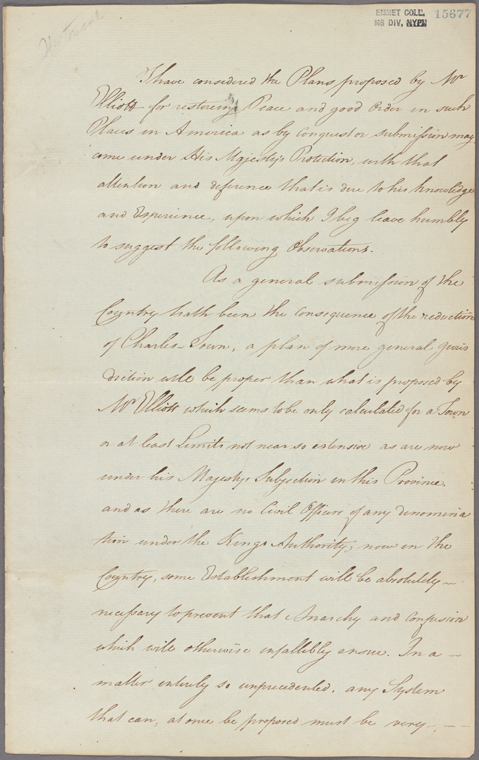 EMMET COLL.
MS DIV, NYPL
15677
I have considered the Plans proposed by Mr
Elliott for restoring Peace and good Order in such
Places in America as by Conquest or submission may
come under His Majesty's Protection, with that
attention and deference that is due to his knowledge
and Experience, upon which I beg leave humbly
to suggest the following Observations.
As a general submission of the
Country hath been the Consequence of the reduction
of Charles-Town, a plan of more general Juris
diction will be proper than what is proposed by
Mr Elliott which seems to be only calculated for a Town
or at least Limits not near so extensive as are now
under his Majestys Subjection in this Province
and as there are no Civil Officers of any denomina
tion under the Kings Authority, now in the
Country, some Establishment will be absolutely
necessary to prevent that Anarchy and confusion
which will otherwise infallibly ensue. In a
matter entirely so unprecedented, any System
that can, at once be proposed must be very